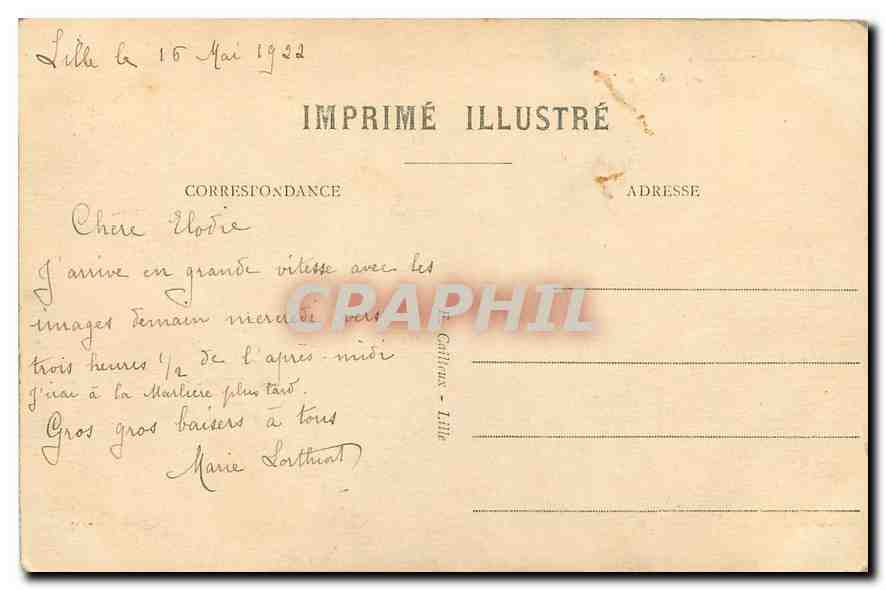 Lille le 16 Mai 1922
IMPRIMÉ ILLUSTRÉ
CORRESPONDANCE
ADRESSE
Chère Elodie
J'arrive en grande vitesse avec les
images demain mercredi vers
trois heures 1/2 de l'après-midi
J'irai à la Marlière plus tard.
Gros gros baisers à tous
Marie Lorthiort
Cailleux - Lille
CPAPHIL